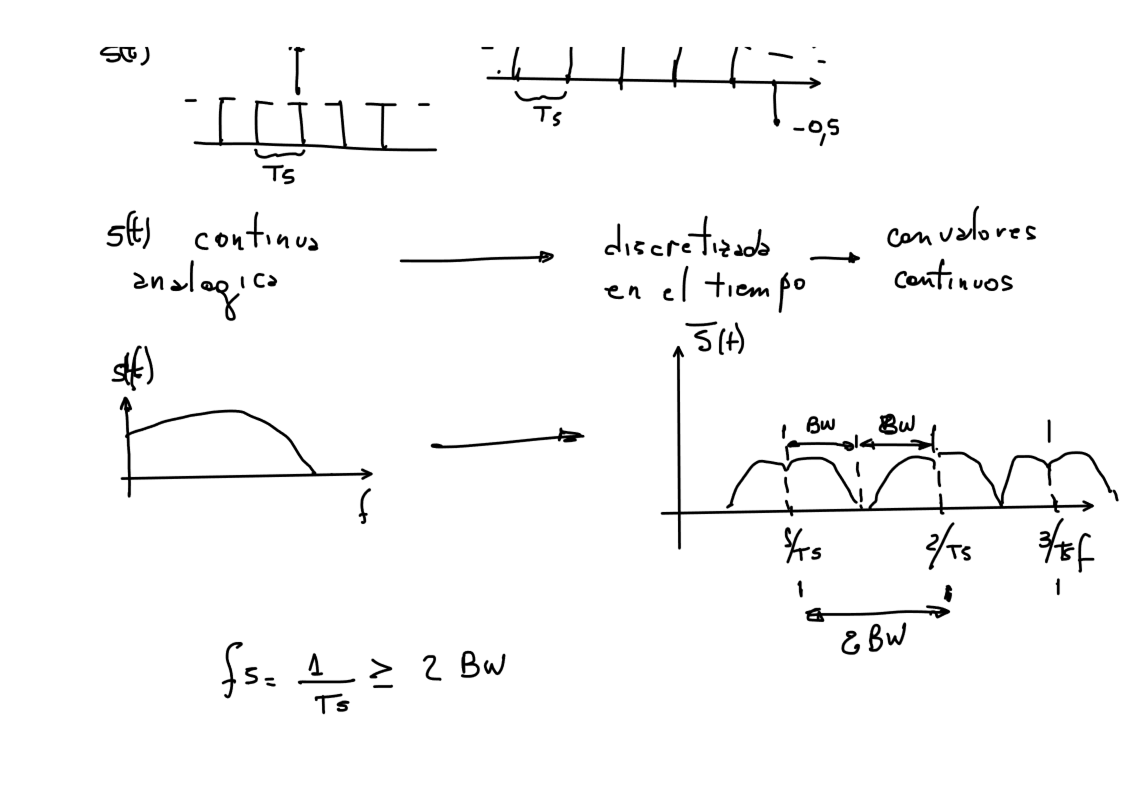 S(t)
Ts
-0,5
Ts
S(t) continua
analogica
discretizada
en el tiempo
con valores
continuos
S(f)
f
S(f)
Bw Bw
1/Ts 2/Ts 3/Ts f
2 Bw
fs = 1/Ts ≥ 2 Bw